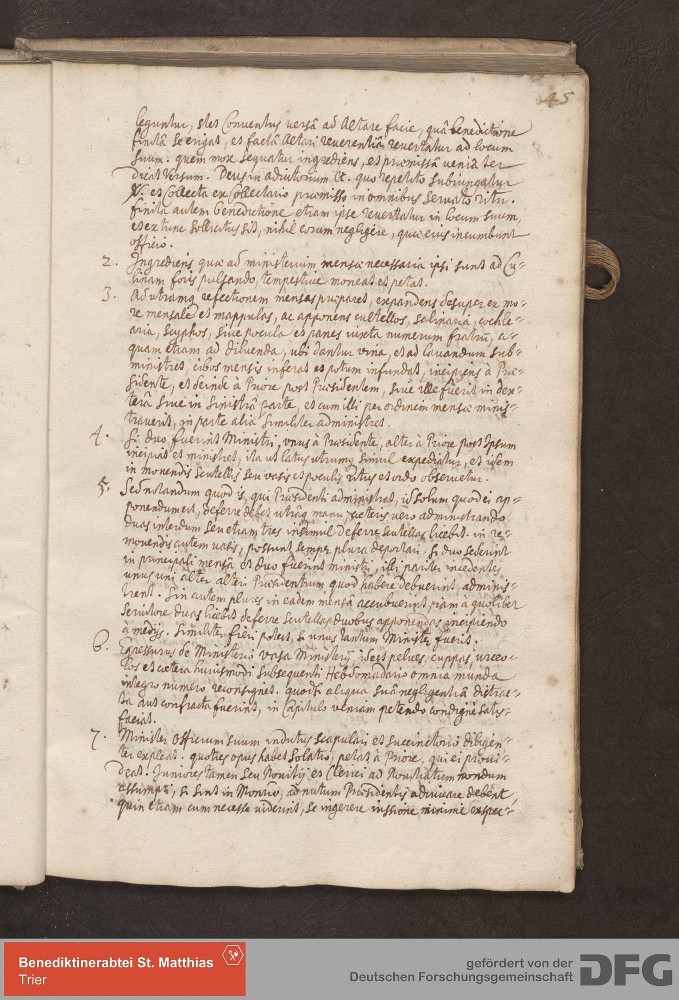 45
leguntur, stet Conventus versâ ad Altare facie, quâ benedictione
finitâ se erigat, et factâ Altari reverentiâ revertatur ad locum
suum. quem mox sequatur ingrediens, et praemissâ veniâ ter
dicat Versum. Deus in adiutorium &c. quo repetito subiungatur
V. et Collecta ex Collectario praemisso in omnibus servato ritu.
finita autem benedictione etiam ipse revertatur in locum suum,
et ex tunc sollicitus sit, nihil eorum negligere, quae eius incumbunt
officio.
2. Ingrediens quae ad ministerium mensae necessaria ipsi sunt ad Cu-
linam foris pulsando, tempestive moneat et petat.
3. Ad utramq refectionem mensas praeparet, expandens desuper ex mo-
re mensale et mappulas, ac apponens cultellos, salinaria, cochle-
aria, scyphos, sive pocula et panes iuxta numerum fratrũ, a-
quam etiam ad diluenda, ubi dantur vina, et ad lavandum sub-
ministret, cibos mensis inferat et potum infundat, incipiens â Prae-
sidente, et deinde â Priore post Praesidentem, sive ille fuerit in dex-
terâ sive in sinistrâ parte, et cum illi per ordinem mensae minis-
traverit, in parte alia similiter administret.
4. Si duo fuerint Ministri, unus â Praesidente, alter â Priore post Ipsum
incipiat et ministret, ita ut latus utrumq simul expediatur, et idem
in movendis scutellis seu vasis et poculis ritus et ordo observetur.
5. Sed notandum quod is, qui Praesidenti administrat, id solum quod ei ap-
ponendum est, deferre debet utrâq manu, caeteris vero administrando
duas interdum seu etiam tres insimul deferre scutellas licebit. in re-
movendis autem vasis, possunt semper plura deportari. Si duo sederint
in principali mensâ et duo fuerint ministri, illi pariter incedentes
unus uni alter alteri Praesidentium quod habere debuerint, adminis-
trent. Sin autem plures in eadem mensâ accubuerint, iam a quolibet
servitore duas licebit deferre scutellas duobus apponendas incipiendo
â medijs. Similiter fieri potest, si unus tantum Minister fuerit.
6. Egressurus de Ministerio vasa Ministerij idest pelves, cuppas, urceo-
los et caetera huiusmodi subsequenti Hebdomadario omnia munda
integro numero reconsignet. quodsi aliqua suâ negligentiâ distrac-
ta aut confracta fuerint, in Capitulo veniam petendo condignè satis-
faciat.
7. Minister officium suum indutus scapulari et succinctorio diligen-
ter expleat. quoties opus habet solatio, petat â Priore, qui ei provi-
deat. Juniores tamen seu Novitij et Clerici ad Novitiatum nondum
assumpti, si sint in Monrio, ad nutum Praesidentis adiuvare debent,
quin etiam cum necesse viderint, se ingerere iussione minimè expec-
Benediktinerabtei St. Matthias
Trier
gefördert von der
Deutschen Forschungsgemeinschaft
DFG